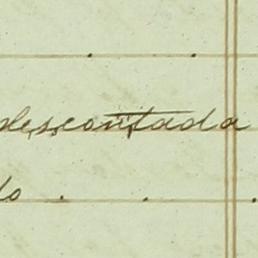 descontada
do . . .